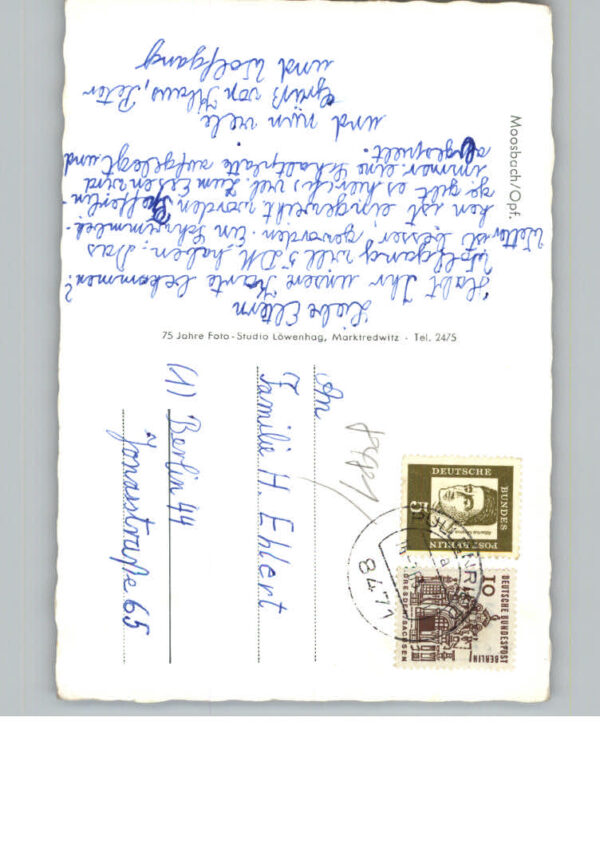 Moosbach/Opf.
Liebe Eltern
Habt Ihr unsere Karte bekommen?
Wolfgang will 5 DM haben. Das
Wetter ist besser geworden. Ein Schwimmbek-
ken ist eingeweiht worden.
ge gibt es hier viel. Zum Essen wird
immer eine Schallplatte aufgelegt und
abgespielt.
und nun viele
Grüß von Klaus, Peter
und Wolfgang
75 Jahre Foto-Studio Löwenhag, Marktredwitz · Tel. 2475
An
Familie H. Ehlert
(1) Berlin 44
Jonasstraße 65
DEUTSCHE
BUNDES
POST BERLIN
5
8471
10
DEUTSCHE BUNDESPOST
BERLIN